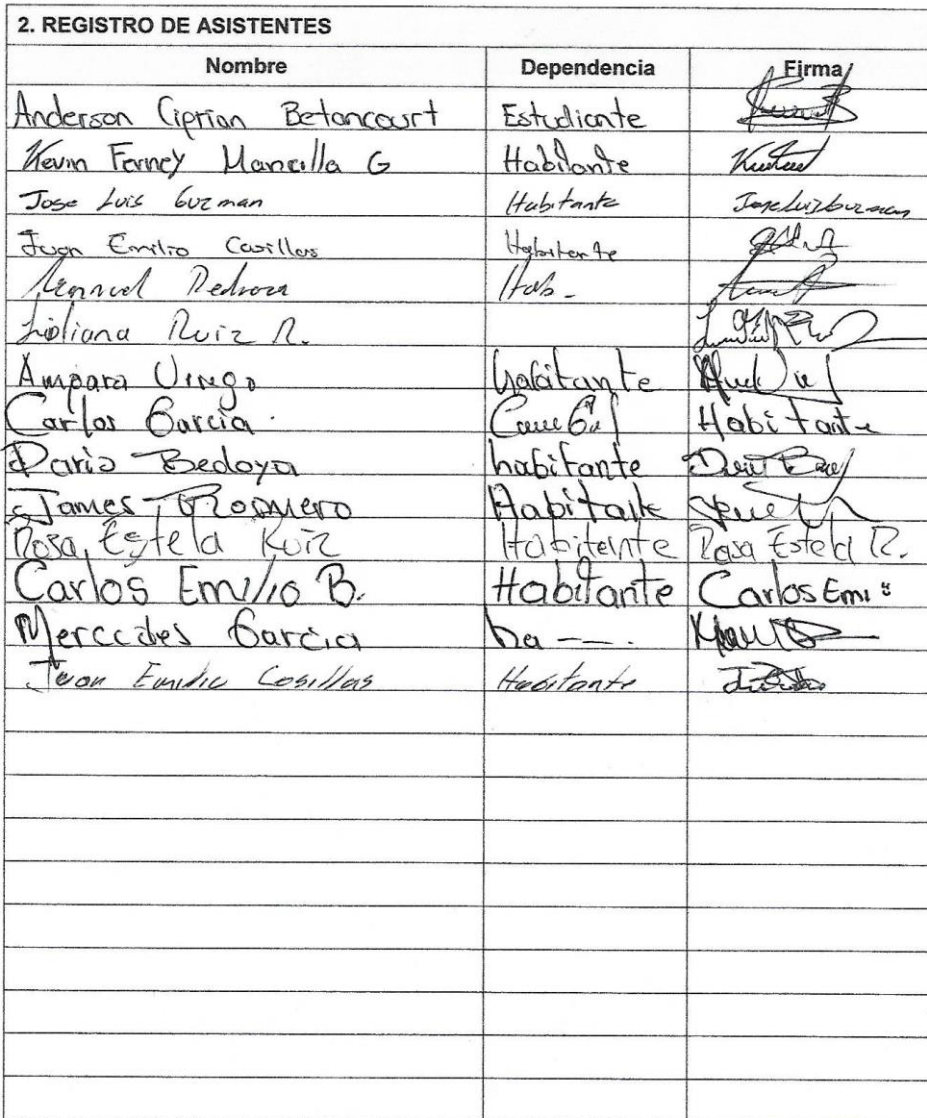 2. REGISTRO DE ASISTENTES
Nombre Dependencia Firma
Anderson Ciprian Betancourt Estudiante
Kevin Ferney Mancilla G Habitante
Jose Luis Guzman Habitante Jose Luis Guzman
Juan Emilio Casillas Habitante
Manuel Pedroza Hab-
Lioliana Ruiz R.
Ampara habitante
Carlos Garcia Habitante
Dario Bedoya habitante
James Habitante
Rosa Estela Ruiz Habitente Rosa Estela R.
Carlos Emilio B. Habitante Carlos Emi
Mercedes Garcia ha --.
Juan Emilio Cosillas Habitante